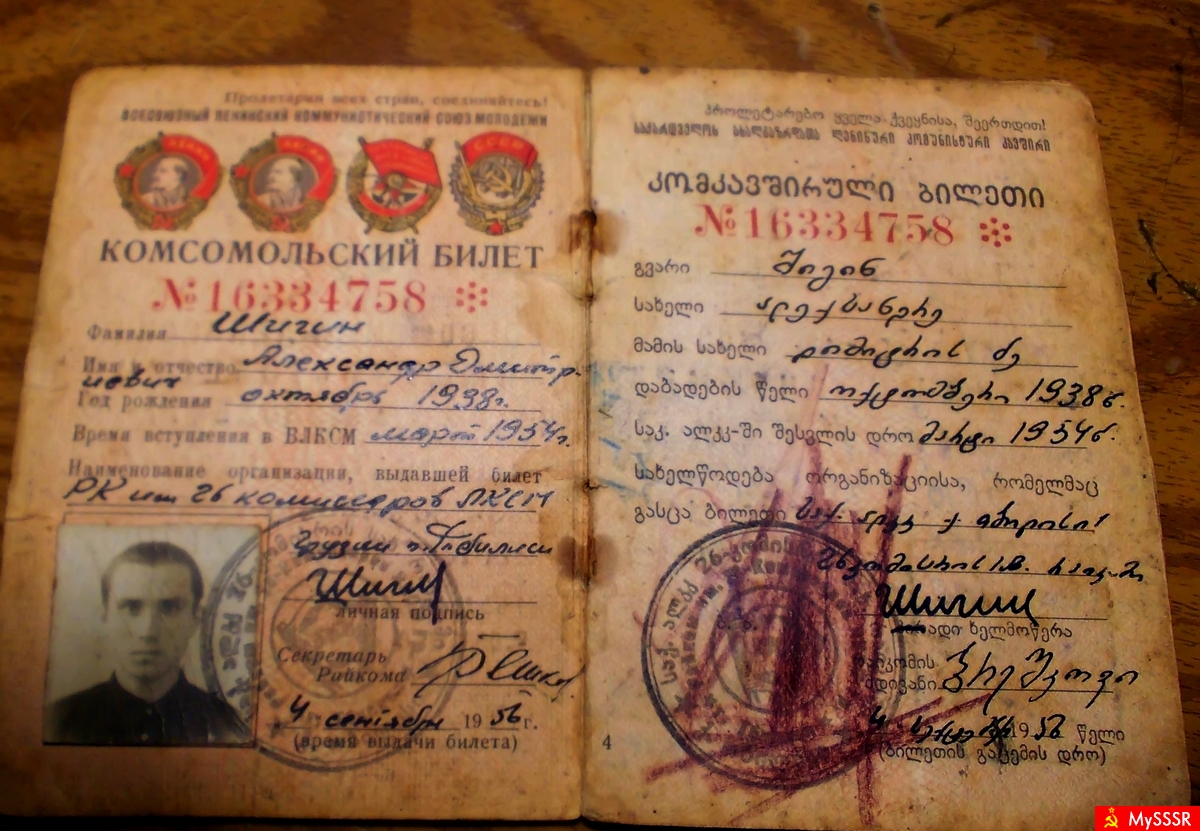 Пролетарии всех стран, соединяйтесь!
ВСЕСОЮЗНЫЙ ЛЕНИНСКИЙ КОММУНИСТИЧЕСКИЙ СОЮЗ МОЛОДЕЖИ
КОМСОМОЛЬСКИЙ БИЛЕТ
№16334758
Фамилия Шигин
Имя и отчество Александр Дмитр
иевич
Год рождения октябрь 1938г.
Время вступления в ВЛКСМ март 1954г.
Наименование организации, выдавшей билет
РК им 26 комиссаров ЛКСМ
Грузии г. Тбилиси
Шигин
личная подпись
Секретарь
Райкома
4 сентябрь 1956г.
(время выдачи билета)
პროლეტარებო ყველა ქვეყნისა, შეერთდით!
საქართველოს ახალგაზრდათა ლენინური კომუნისტური კავშირი
კომკავშირული ბილეთი
№16334758
გვარი შიგინ
სახელი ალექსანდრე
მამის სახელი დიმიტრის ძე
დაბადების წელი ოქტომბერი 1938წ.
საქ. ალკკ-ში შესვლის დრო მარტი 1954წ.
სახელწოდება ორგანიზაციისა, რომელმაც
გასცა ბილეთი საქ. ალკკ ქ. თბილისი
26 კომისრის
Шигин
პირადი ხელმოწერა
რაიკომის
მდივანი
4 1956 წელი
(ბილეთის გაცემის დრო)
4
MySSSR